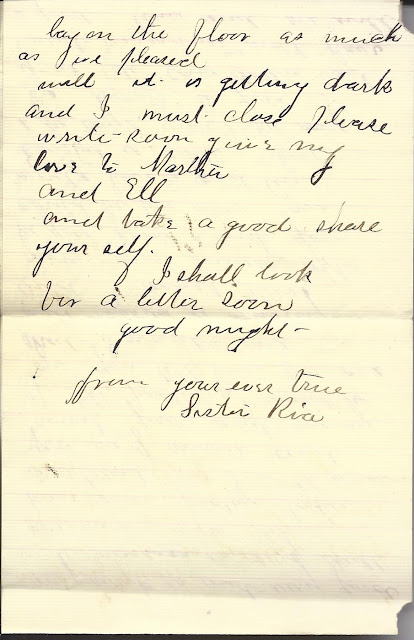 lay on the floor as much
as we pleased
well it is getting dark
and I must close Please
write soon give my
love to Marther
and Ell
and take a good share
your self.
I shall look
for a letter soon
good night-
from your ever true
Sister Ria